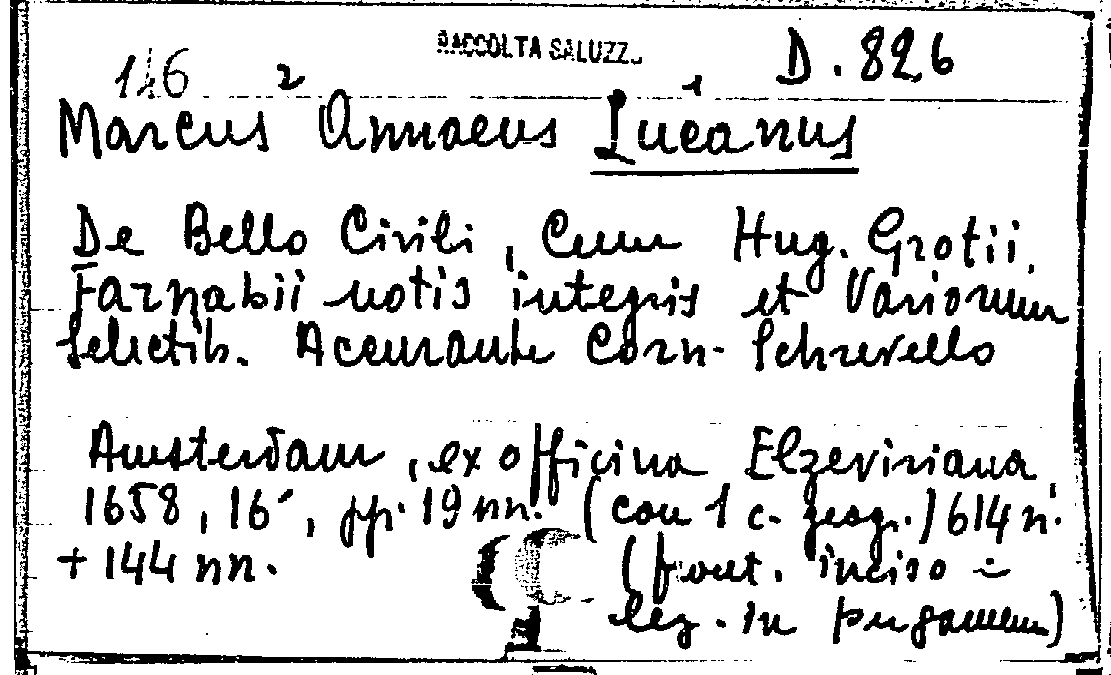 RACCOLTA SALUZZ
146 D. 826
Marcus 2 Annaeus 1 Lucanus
De Bello Civili, Cum Hug. Grotii,
Farnabii notis integris et Variorum
Selectib. Accurante Corn. Schrevello
Amsterdam, ex officina Elzeviriana,
1658, 16°, pp. 19 nn. (con 1 c. geogr.) 614 n.
+ 144 nn. (front. inciso -
leg. in pergamena)